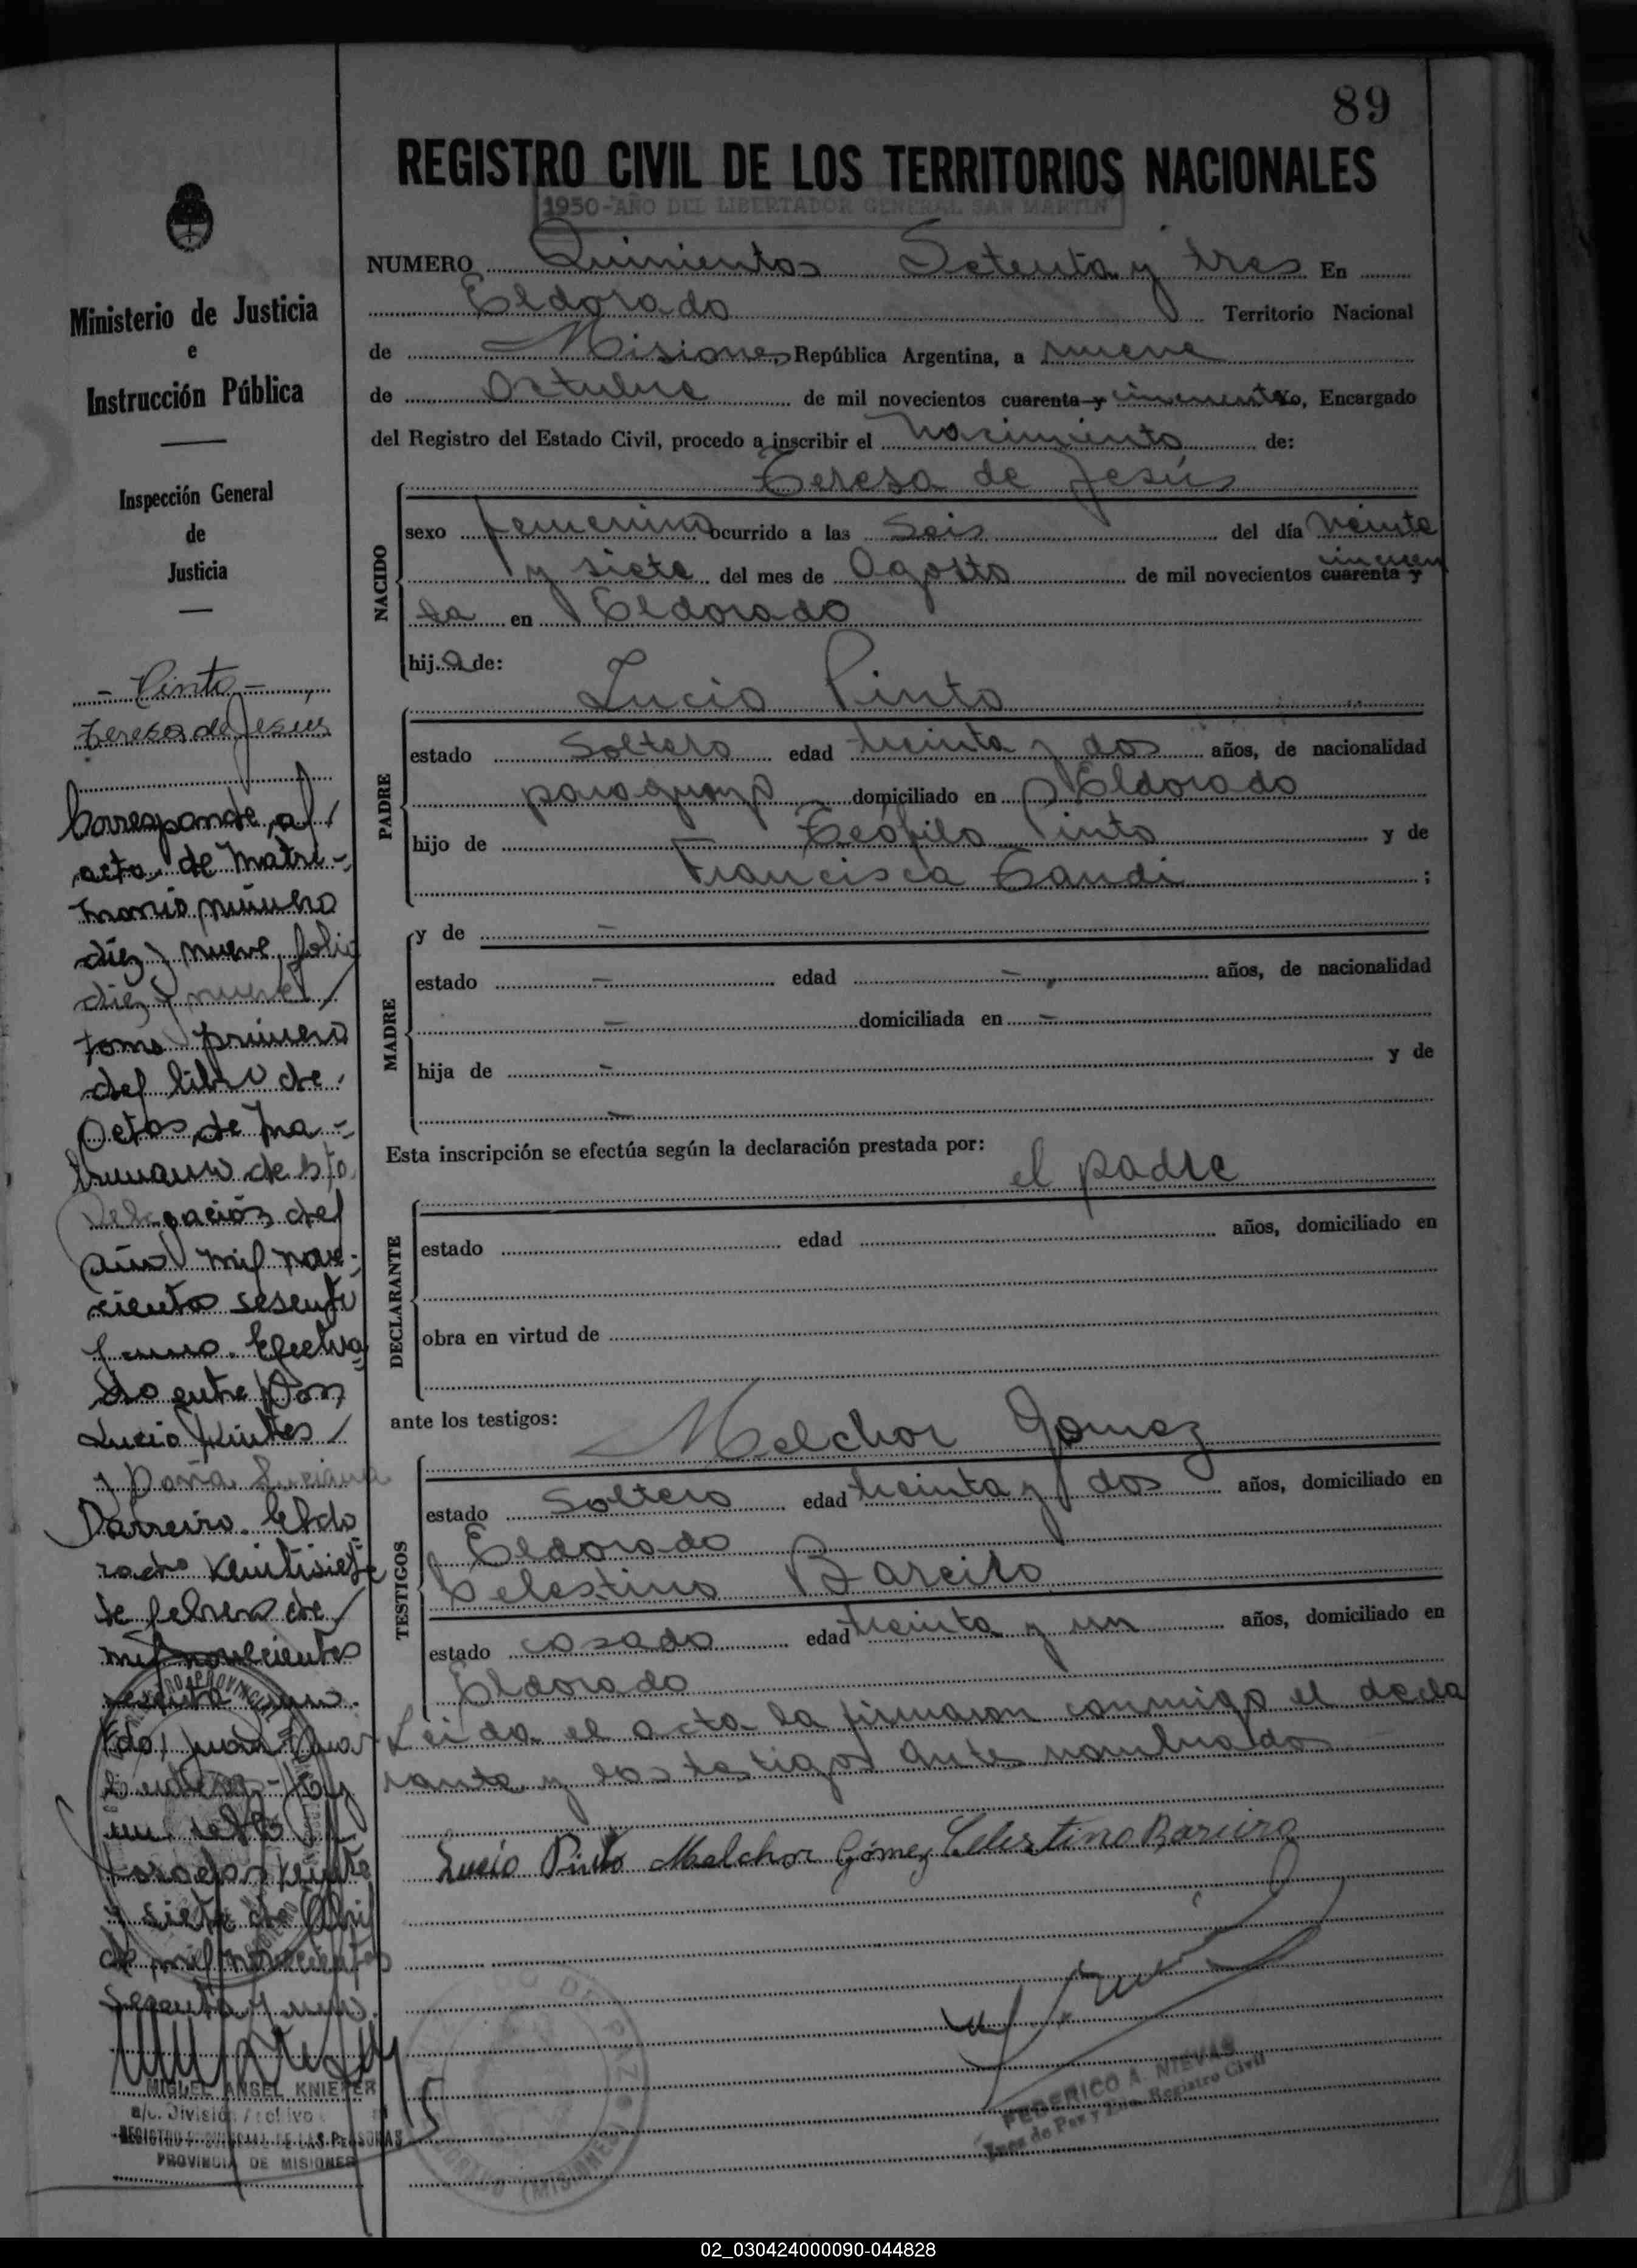 89
REGISTRO CIVIL DE LOS TERRITORIOS NACIONALES
1950-AÑO DEL LIBERTADOR GENERAL SAN MARTIN
NUMERO Quinientos Setenta y tres En
Eldorado Territorio Nacional
de Misiones, República Argentina, a nueve
de Octubre de mil novecientos cuarenta y cincuenta Yo, Encargado
del Registro del Estado Civil, procedo a inscribir el nacimiento de:
NACIDO
Teresa de Jesús
sexo femenino ocurrido a las Seis del día veinte
y siete del mes de Agosto de mil novecientos cuarenta y cincuen
ta en Eldorado
hija de:
PADRE
Lucio Pinto
estado Soltero edad treinta y dos años, de nacionalidad
paraguayo domiciliado en Eldorado
hijo de Teófilo Pinto y de
Francisca Candi ;
MADRE
y de -
estado - edad - años, de nacionalidad
- domiciliada en -
hija de - y de
-
Esta inscripción se efectúa según la declaración prestada por:
el padre
DECLARANTE
estado edad años, domiciliado en
obra en virtud de
ante los testigos:
TESTIGOS
Melchor Gomez
estado Soltero edad treinta y dos años, domiciliado en
Eldorado
Celestino Bareiro
estado casado edad treinta y un años, domiciliado en
Eldorado
Leida el acta la firmaron conmigo el decla
rante y los testigos antes nombrados
Lucio Pinto Melchor Gómez Celestino Bareiro
FEDERICO A. NIEVAS
Juez de Paz y Registro Civil
Ministerio de Justicia
e
Instrucción Pública
Inspección General
de
Justicia
- Pinto -
Teresa de Jesus
Corresponde al
acta de Matri-
monio número
diez y nueve folio
diez y nueve
tomo primero
del libro de
Actas de Ma-
trimonio de
Delegación del
año mil nove-
cientos sesenta
y uno. Efectua
do entre Don
Lucio Pintos
y Doña Luciana
Barreiro. Eldo
rado veintisiete
de febrero de
mil novecientos
sesenta uno.
Fdo. Juan
y siete de Abril
de mil novecientos
Sesenta y uno.
MIGUEL ANGEL KNIEPER
a/c. División Archivo
REGISTRO PROVINCIAL DE LAS PERSONAS
PROVINCIA DE MISIONES
02_030424000090-044828